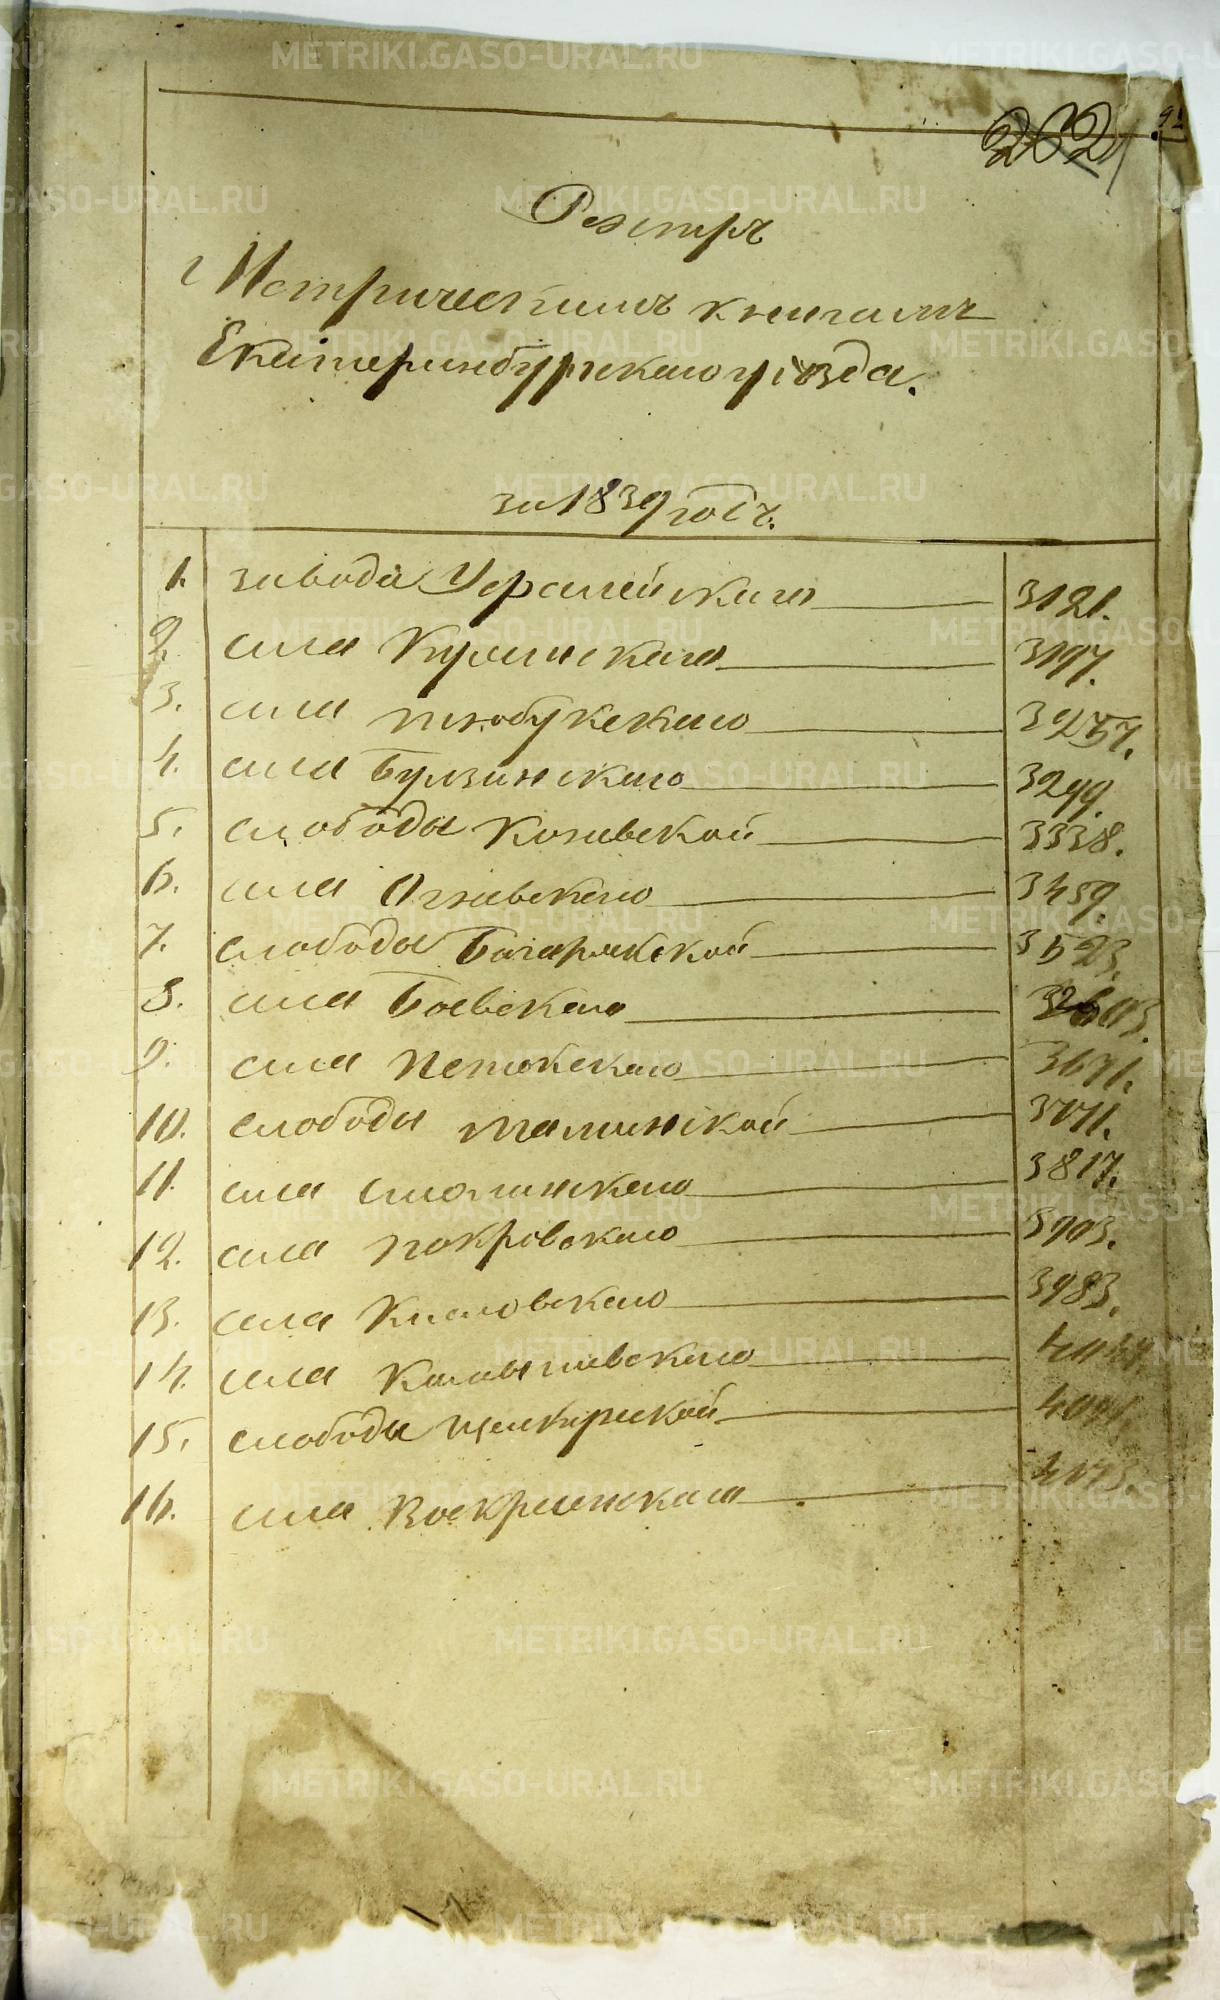 262
Реэстръ
Метрическимъ книгамъ
Екатеринбургскаго уѣзда.
за 1839 годъ.
1. завода Уфалейскаго 3121.
2. села Куяшскаго 3197.
3. села Тюбукскаго 3257.
4. села Булзинскаго 3299.
5. слободы Коневской 3338.
6. села Огневскаго 3459.
7. слободы Багарякской 3523.
8. села Боевскаго
9. села 3671.
10. слободы
11. села Смолинскаго 3817.
12. села Покровскаго 3903.
13. села Кисловскаго 3983.
14. села Колпаковскаго
15. слободы
16. села Воскресенскаго
METRIKI.GASO-URAL.RU